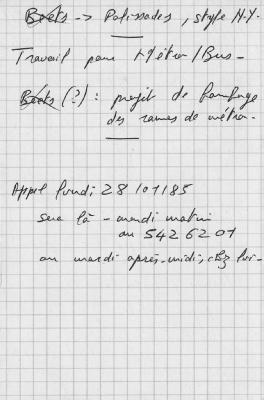 Boets -> Palissades, style N.Y.
Travail pour Métro/Bus -
Boets (?) : projet de pelliculage
des rames de métro -
Appel lundi 28/01/85
sera là - mardi matin
au 5426201
ou mardi après-midi, chez lui -